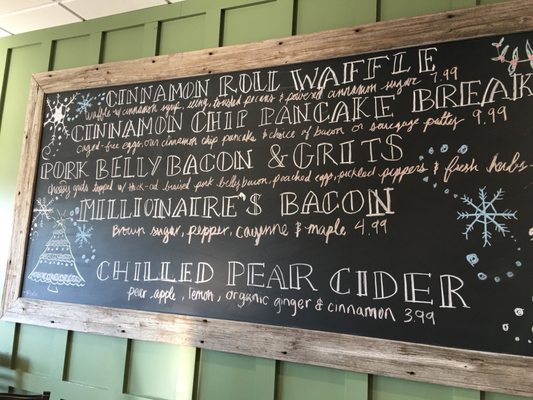 CINNAMON ROLL WAFFLE
waffle w/ cinnamon syrup, icing, toasted pecans & powdered cinnamon sugar 7.99
CINNAMON CHIP PANCAKE BREAK
caged-free eggs, our cinnamon chip pancake & choice of bacon or sausage patties 9.99
PORK BELLY BACON & GRITS
cheesy grits topped w/ thick-cut braised pork belly bacon, poached eggs, pickled peppers & fresh herbs
MILLIONAIRE'S BACON
Brown sugar, pepper, cayenne & maple 4.99
CHILLED PEAR CIDER
pear, apple, lemon, organic ginger & cinnamon 3.99